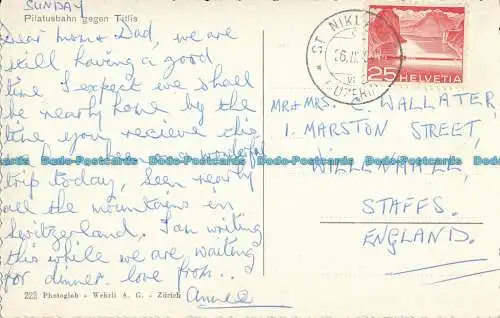 SUNDAY
Pilatusbahn gegen Titlis
Dear Mom & Dad, we are
still having a good
time I expect we shall
be nearly home by the
time you recieve this
been a wonderful
trip today, seen nearly
all the mountains in
Switzerland. I am writing
this while we are waiting
for dinner. love from..
Anne
222 Photoglob - Wehrli A. G. - Zürich
ST. NIKL
LUZERN
25 HELVETIA
MR & MRS. C WALLATER,
1. MARSTON STREET,
WILLENHALL,
STAFFS.
ENGLAND.
Dodo-Postcards Dodo-Postcards Dodo-Postcards Dodo-Postcards Dodo-Postcards